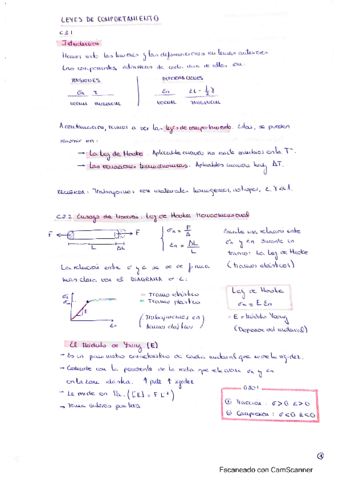 LEYES DE COMPORTAMIENTO
C.3.1
Introducción
Hemos visto las tensiones y las deformaciones en temas anteriores
Las componentes intrínsecas de cada una de ellas son:
TENSIONES
DEFORMACIONES
σn τ
εn
NORMAL TANGENCIAL
NORMAL TANGENCIAL
A continuación, vamos a ver las leyes de comportamiento. Estas, se pueden
resumir en:
→ La Ley de Hooke. Aplicable cuando no existe cambios en la Tª.
→ Las ecuaciones termoelásticas. Aplicables cuando hay ΔT.
RECUERDA: Trabajamos con materiales homogéneos, isótropos, C. y e.l.
C.3.2 Ensayo de tracción: Ley de Hooke Monodimensional
F
F
L
ΔL
σn = F/A
εn = ΔL/L
Existe una relación entre
σn y εn durante un
tramo: La Ley de Hooke
(tramos elásticos)
La relación entre σ y ε se ve de forma
más clara con el DIAGRAMA σ-ε:
σn
εn
— Tramo elástico
— Tramo plástico
(Trabajaremos en
tramo elástico)
Ley de Hooke
σn = E·εn
· E = Módulo Young
(Depende del material)
El Módulo de Young (E)
→ Es un parámetro característico de cada material que mide la rigidez.
→ Coincide con la pendiente de la recta que relaciona σn y εn
en la zona elástica. ↑ pdte ↑ rigidez
→ Se mide en Pa. ([E] = F L⁻²)
→ Toma valores positivos
OJO!
① Tracción: σ>0 ε>0
② Compresión: σ<0 ε<0
①
Escaneado con CamScanner